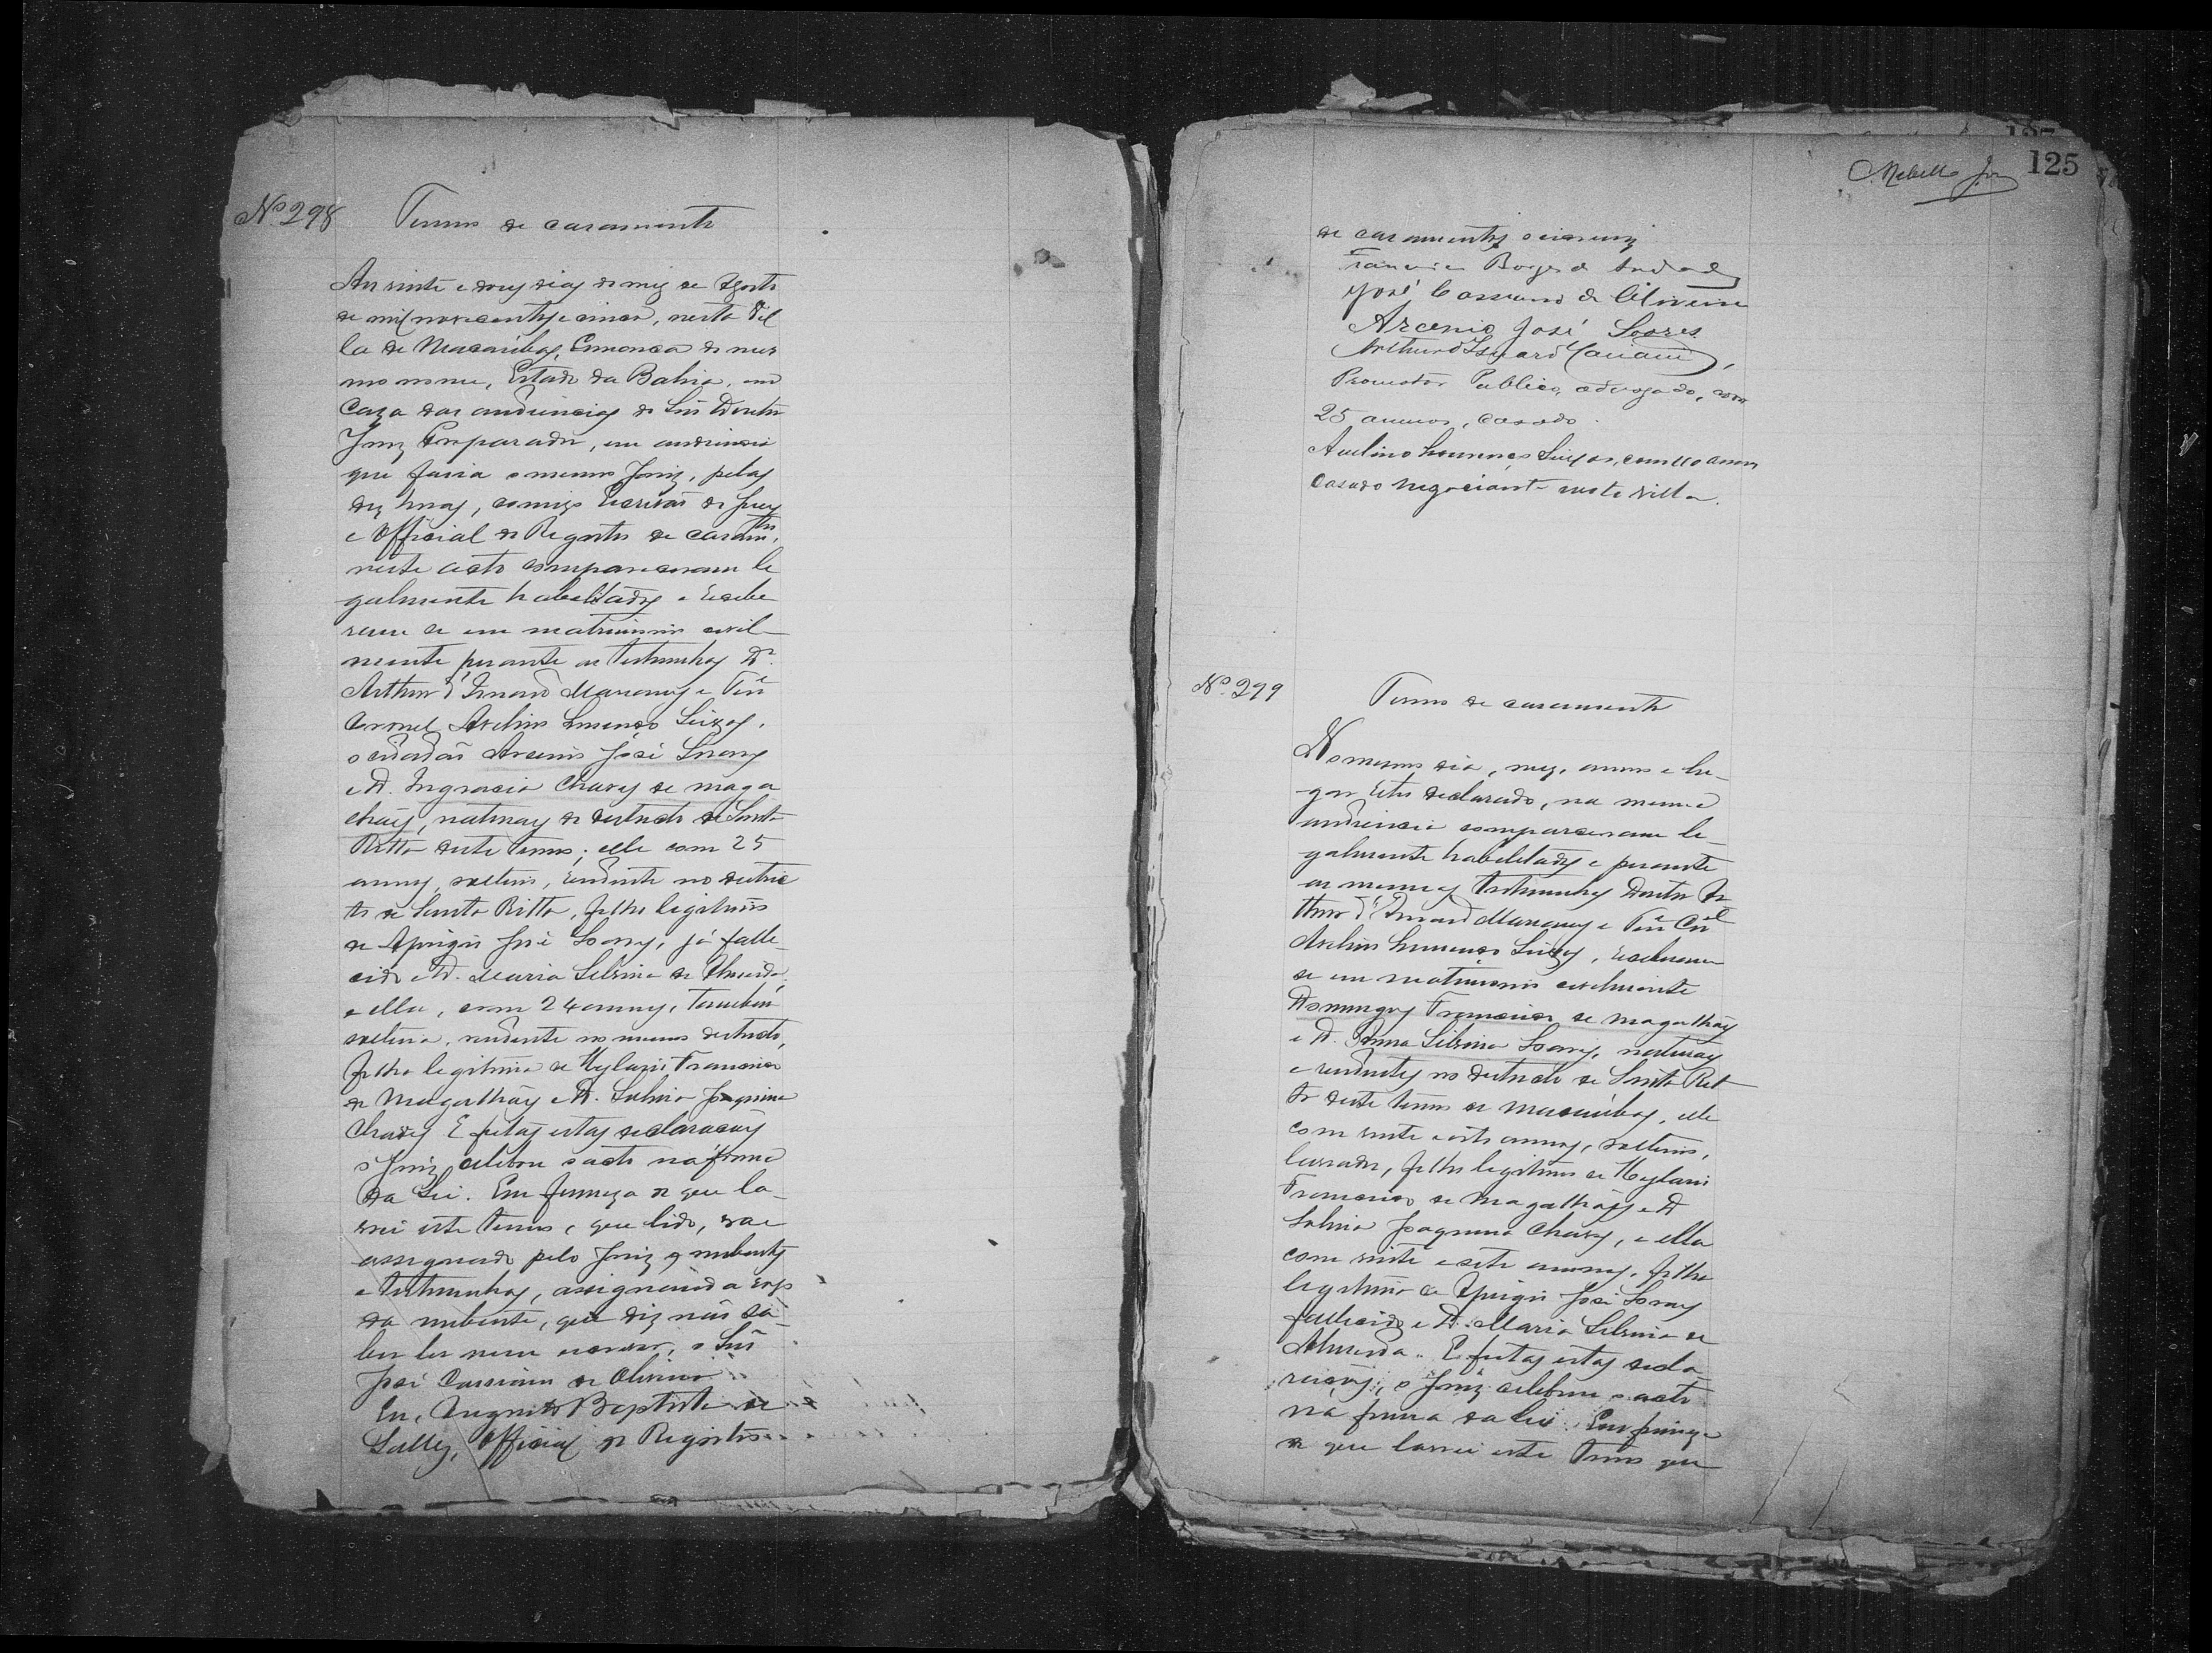 Nº 298
Termo de casamento
Aos vinte e dous dias do mez de Agosto
de mil nove centos e cinco, nesta Vil
la de Macaúbas, Comarca do mes
mo nome, Estado da Bahia, em
Caza das audiencias do Snr Doutor
Juiz Preparador, em audiencia
que fazia o mesmo Juiz, pelas
dez horas, comigo Escrivão de Juiz
e Official do Registro de casamtos
neste acto compareceram le
galmente habelitados e recebe
ram se em matrimonio civil
mente perante as testemunhas Dr.
Arthur d' Mariany e Tene
Coronel Avelino Lourenço Seixas,
o cidadão Arcenio José Soares
e D. Ingracia Chaves de maga
lhães, naturaes do destricto de Santa
Ritta deste termo; elle com 25
annos, solteiro, rezidente no destric
to de Santa Ritta, filho legitimo
de Aprigio José Soares, já falle
cido e D. Maria Silvina de Almeida;
e ella, com 24 annos, tambem
solteira, rezidente no mesmo destricto,
filha legitima de Hylario Francisco
de Magalhães e D. Salvina Joaquina
Chaves. E feitas estas declarações
o Juiz celebrou o acto na forma
da Lei. Em firmeza do que la
vrei este termo, que lido, vae
assignado pelo Juiz, nubentes
e testemunhas, assignando a rogo
da nubente, que diz não sa
ber ler nem escrever, o Snr
José Cassiano de Oliveira
Eu, Augusto Baptista de
Salles, Official do Registro
125
de casamentos o escrevi
Francisco Borges de Andrade
José Cassiano de Oliveira
Arcenio José Soares
Arthur d' Mariani,
Promotor Publico, advogado, com
25 annos, casado.
Avelino Lourenço Seixas, com 40 annos
Casado negociante nesta villa.
Nº 299
Termo de casamento
No mesmo dia, mez, anno e lu
gar retro declarado, na mesma
audiencia compareceram le
galmente habelitados e perante
as mesmas testemunhas Doutor Ar
thur d' Mariany e Tene Cel
Avelino Lourenço Seixas, receberam
se em matrimonio civelmente
Domingos Francisco de magalhães
e D. Anna Silvina Soares, naturaes
e rezidentes no destricto de Santa Rit
ta deste termo de Macaúbas, elle
com vinte e oito annos, solteiro,
lavrador, filho legitimo de Hylario
Francisco de Magalhães e D
Salvina Joaquina Chaves, e ella
com vinte e sete annos, filha
legitima de Aprigio José Soares
fallecido e D. Maria Silvina de
Almeida. E feitas estas decla
rações, o Juiz celebrou o acto
na forma da lei. Em firmeza
do que lavrei este termo que